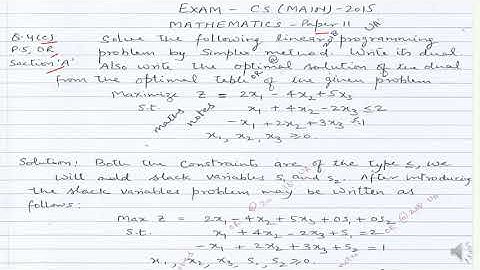 EXAM - CS (MAIN)-2015
MATHEMATICS - Paper II
Q.4(c) Solve the following linear programming
P.S. OR problem by Simplex method. Write its dual.
Section 'A' Also write the optimal solution of the dual
from the optimal table of the given problem
Maximize Z = 2x₁ - 4x₂ + 5x₃
s.t. x₁ + 4x₂ - 2x₃ ≤ 2
-x₁ + 2x₂ + 3x₃ ≤ 1
x₁, x₂, x₃ ≥ 0.
maths notes
Solution: Both the constraints are of the type ≤, we
will add slack variables S₁ and S₂. After introducing
the slack variables problem may be written as
follows:
Max Z = 2x₁ - 4x₂ + 5x₃ + 0S₁ + 0S₂
s.t. x₁ + 4x₂ - 2x₃ + S₁ = 2
-x₁ + 2x₂ + 3x₃ + S₂ = 1
x₁, x₂, x₃, S₁, S₂ ≥ 0.